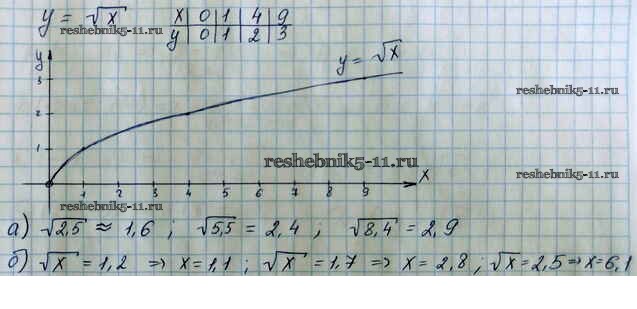 y = √x   x | 0 | 1 | 4 | 9
reshebnik5-11.ru   y | 0 | 1 | 2 | 3
y   y = √x
3
reshebnik5-11.ru
2
1
reshebnik5-11.ru
x
reshebnik5-11.ru
1 2 3 4 5 6 7 8 9
reshebnik5-11.ru
а) √2,5 ≈ 1,6 ; √5,5 = 2,4 ; √8,4 = 2,9
б) √x = 1,2 ⇒ x = 1,1 ; √x = 1,7 ⇒ x = 2,8 ; √x = 2,5 ⇒ x = 6,1